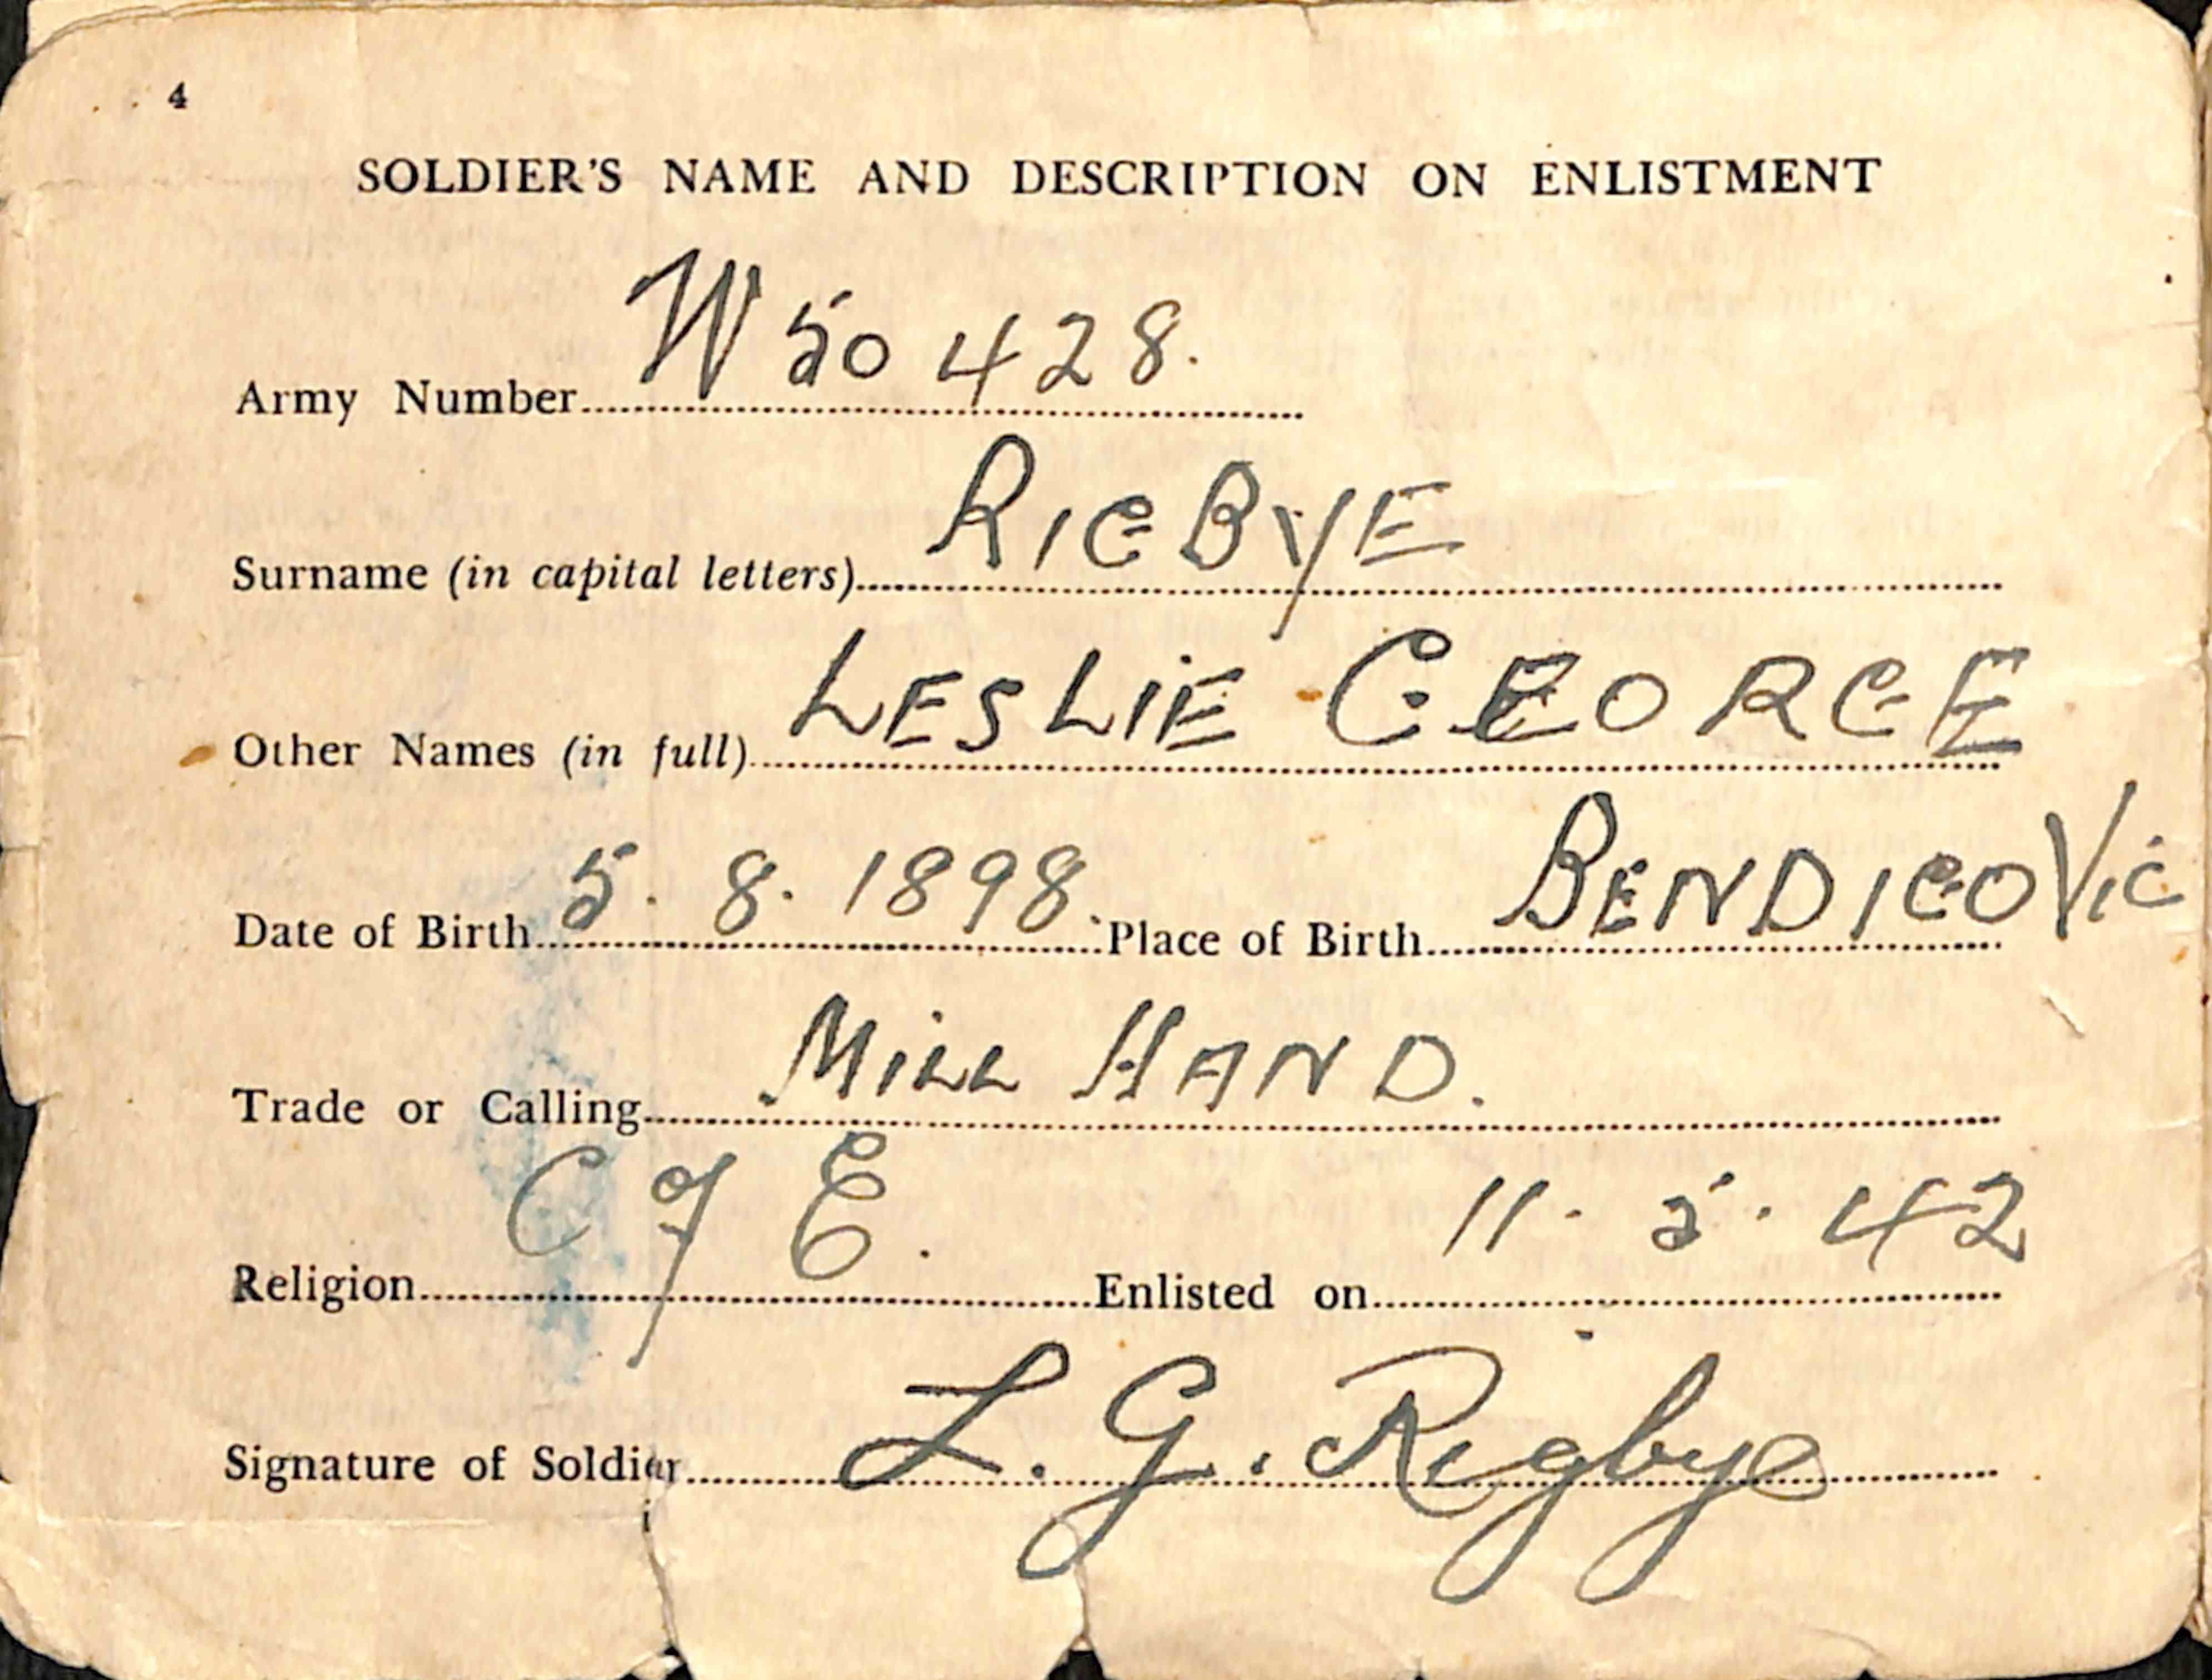 4
SOLDIER'S NAME AND DESCRIPTION ON ENLISTMENT
Army Number W50428.
Surname (in capital letters) RIGBYE
Other Names (in full) LESLIE GEORGE
Date of Birth 5. 8. 1898. Place of Birth BENDIGO VIC
Trade or Calling MILL HAND.
Religion C of E. Enlisted on 11. 5. 42
Signature of Soldier L. G. Rigbye